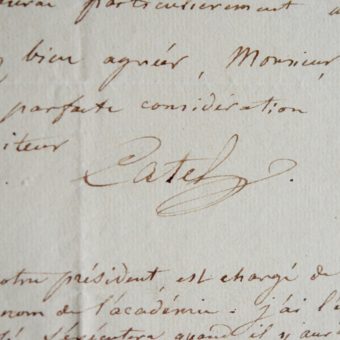 particulièrement
bien agréer, Monsieur
parfaite considération
Catel
président est chargé de
nom de l'académie. j'ai l'é
quand il y aur